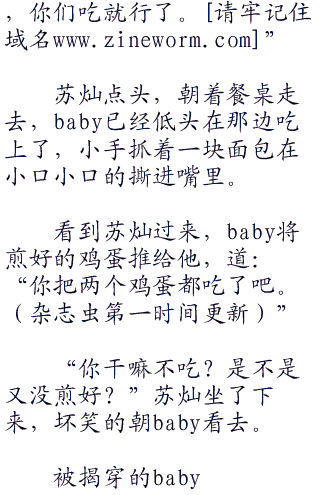 ，你们吃就行了。[请牢记住
域名www.zineworm.com]”
苏灿点头，朝着餐桌走
去，baby已经低头在那边吃
上了，小手抓着一块面包在
小口小口的撕进嘴里。
看到苏灿过来，baby将
煎好的鸡蛋推给他，道：
“你把两个鸡蛋都吃了吧。
（杂志虫第一时间更新）”
“你干嘛不吃？是不是
又没煎好？”苏灿坐了下
来，坏笑的朝baby看去。
被揭穿的baby